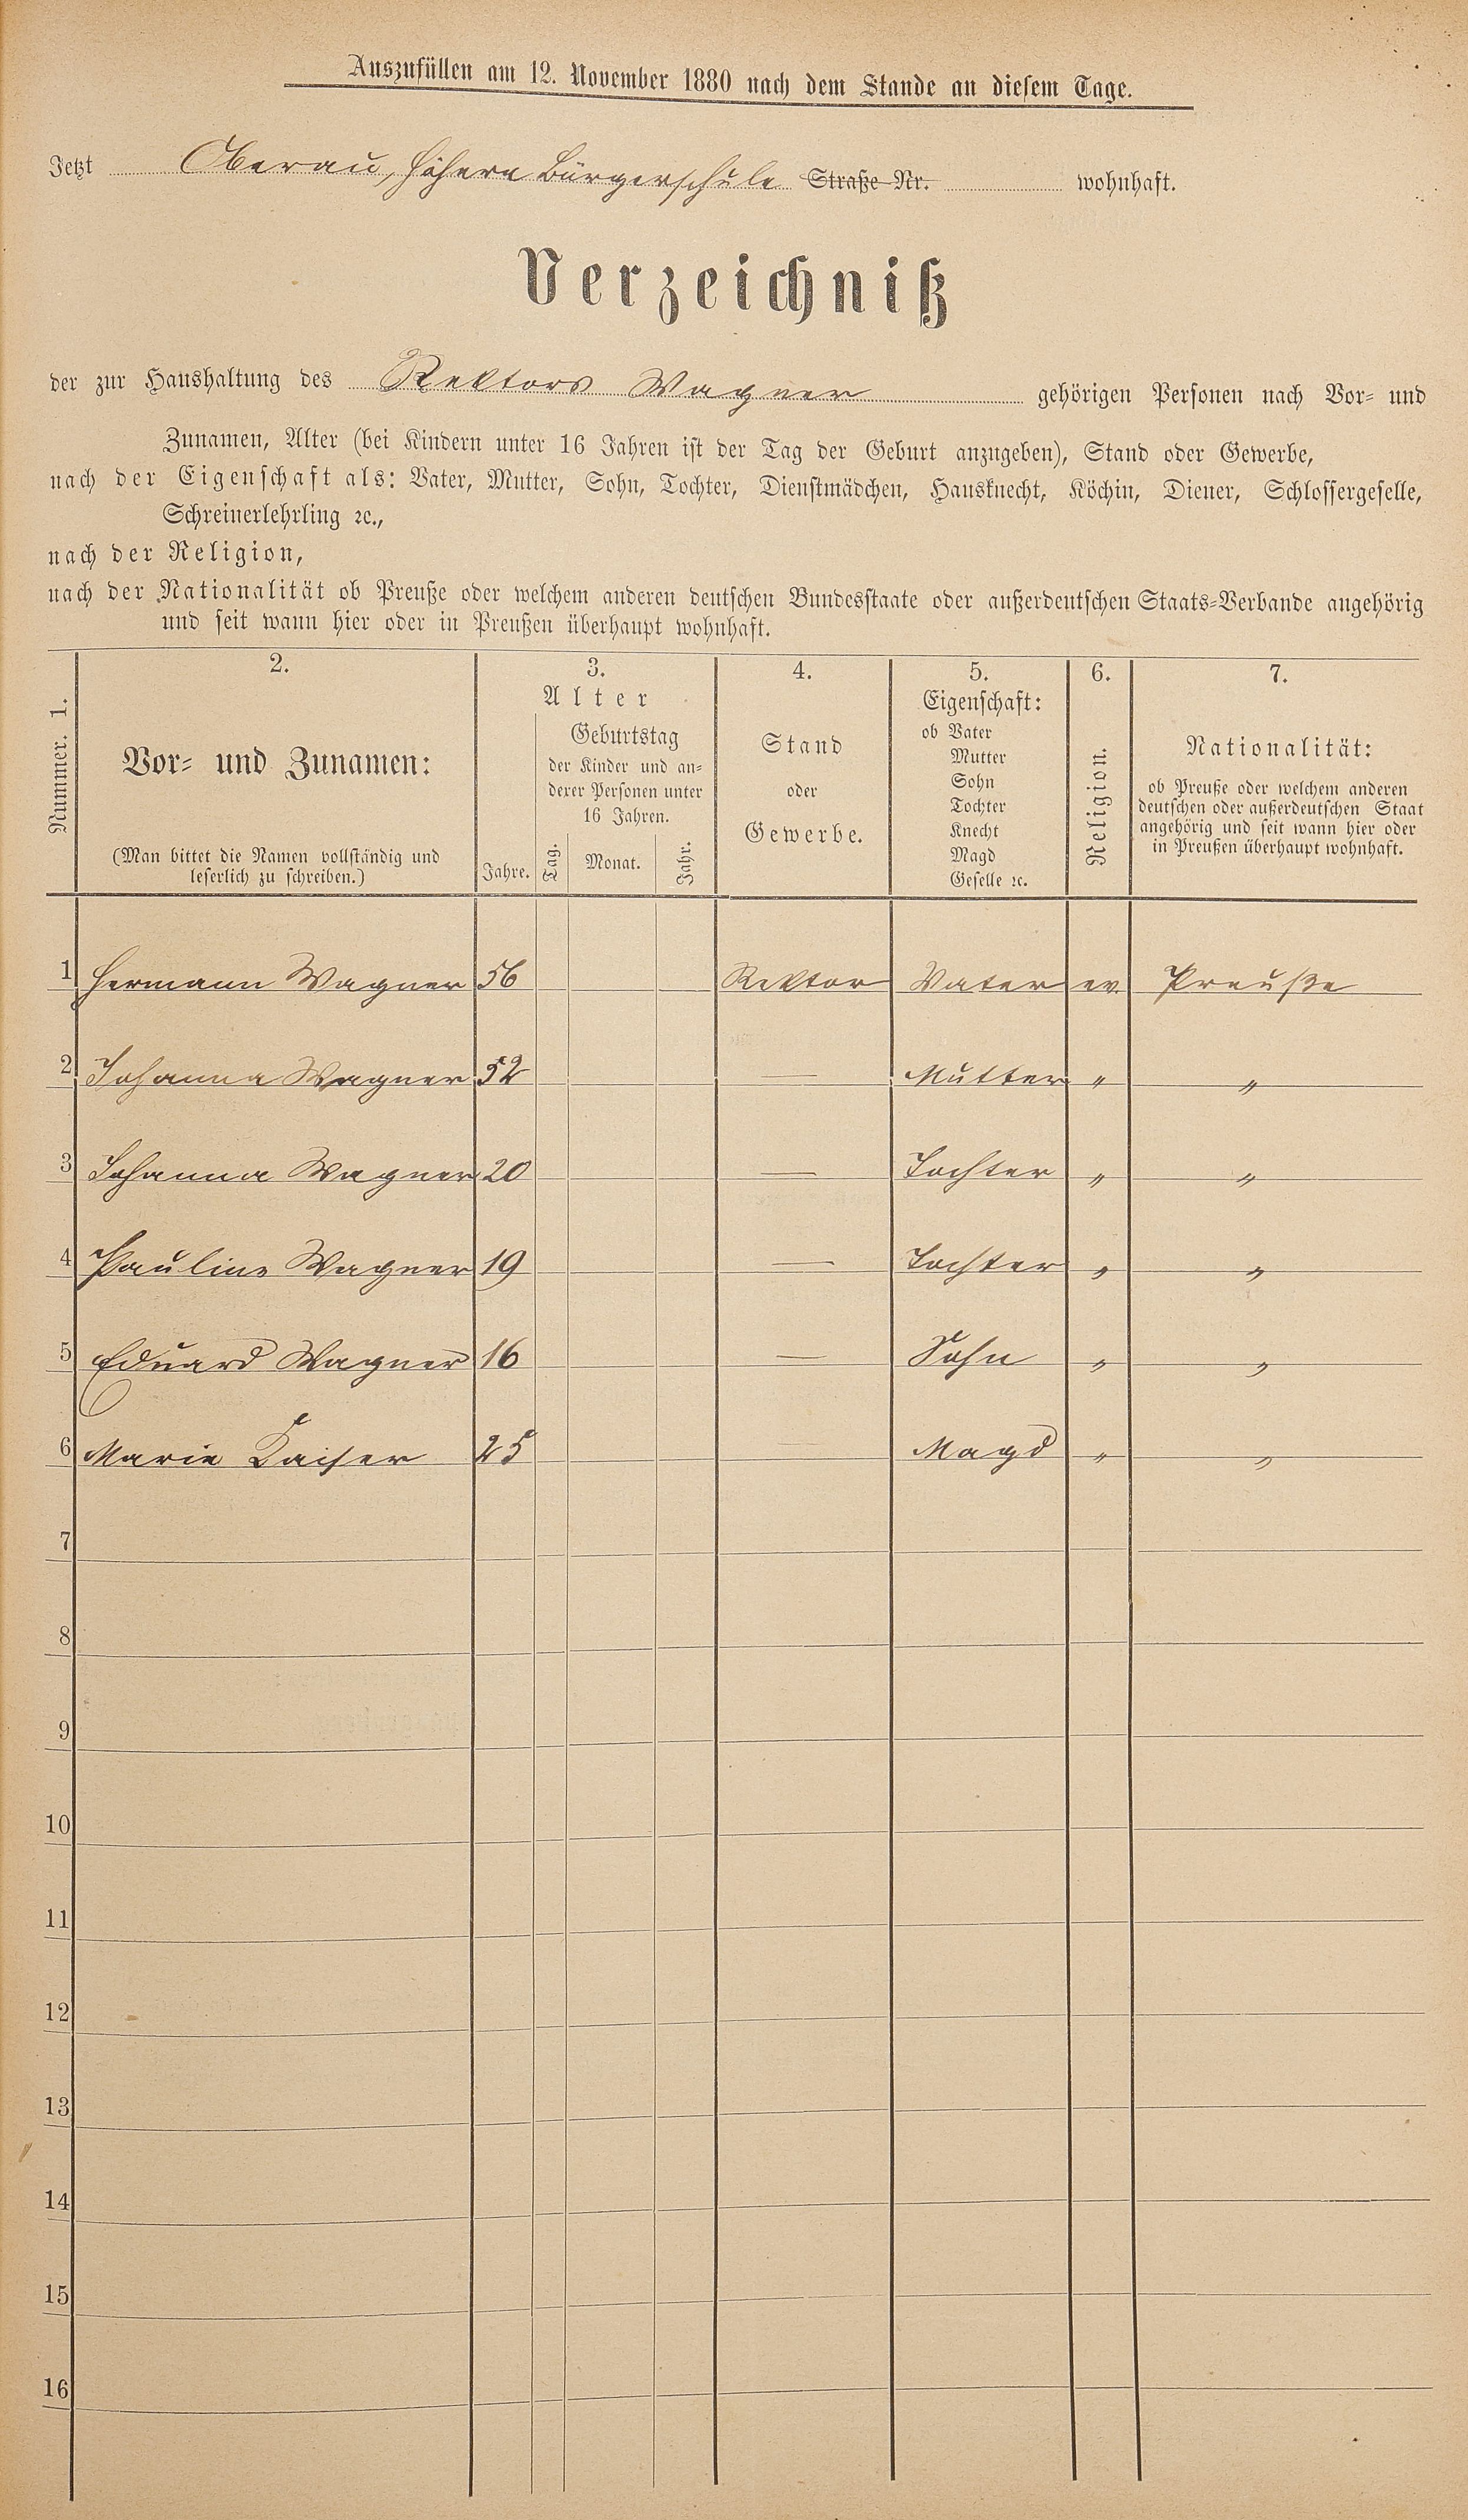 Auszufüllen am 12. November 1880 nach dem Stande an diesem Tage.
Jetzt Oberau, höhere Bürgerschule Straße Nr. wohnhaft.
Verzeichniß
der zur Haushaltung des Rektors Wagner gehörigen Personen nach Vor- und
Zunamen, Alter (bei Kindern unter 16 Jahren ist der Tag der Geburt anzugeben), Stand oder Gewerbe,
nach der Eigenschaft als: Vater, Mutter, Sohn, Tochter, Dienstmädchen, Hausknecht, Köchin, Diener, Schlossergeselle,
Schreinerlehrling ꝛc.,
nach der Religion,
nach der Nationalität ob Preuße oder welchem anderen deutschen Bundesstaate oder außerdeutschen Staats-Verbande angehörig
und seit wann hier oder in Preußen überhaupt wohnhaft.
Nummer. 1.
2.
Vor- und Zunamen:
(Man bittet die Namen vollständig und
leserlich zu schreiben.)
3.
Alter
Jahre.
Geburtstag
der Kinder und an-
derer Personen unter
16 Jahren.
Tag. Monat. Jahr.
4.
Stand
oder
Gewerbe.
5.
Eigenschaft:
ob Vater
Mutter
Sohn
Tochter
Knecht
Magd
Geselle ꝛc.
6.
Religion.
7.
Nationalität:
ob Preuße oder welchem anderen
deutschen oder außerdeutschen Staat
angehörig und seit wann hier oder
in Preußen überhaupt wohnhaft.
1 Hermann Wagner 56 Rektor Vater ev. Preuße
2 Johanna Wagner 52 — Mutter " "
3 Johanna Wagner 20 — Tochter " "
4 Pauline Wagner 19 — Tochter " "
5 Eduard Wagner 16 — Sohn " "
6 Marie Kaiser 25 Magd " "
7
8
9
10
11
12
13
14
15
16